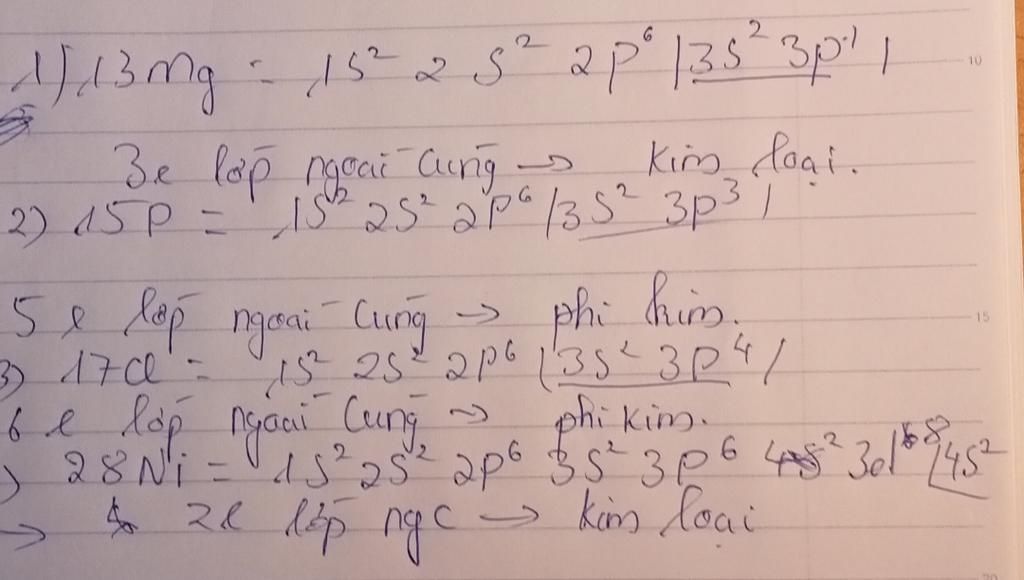 1) 13 Mg = 1s² 2s² 2p⁶ / 3s² 3p¹ /
3e lớp ngoài cùng → kim loại.
2) 15P = 1s² 2s² 2p⁶ / 3s² 3p³ /
5 e lớp ngoài cùng → phi kim.
3) 17Cl = 1s² 2s² 2p⁶ / 3s² 3p⁴ /
6 e lớp ngoài cùng → phi kim.
) 28Ni = 1s² 2s² 2p⁶ 3s² 3p⁶ 3d⁸ / 4s²
→ 2e lớp ngc → kim loại